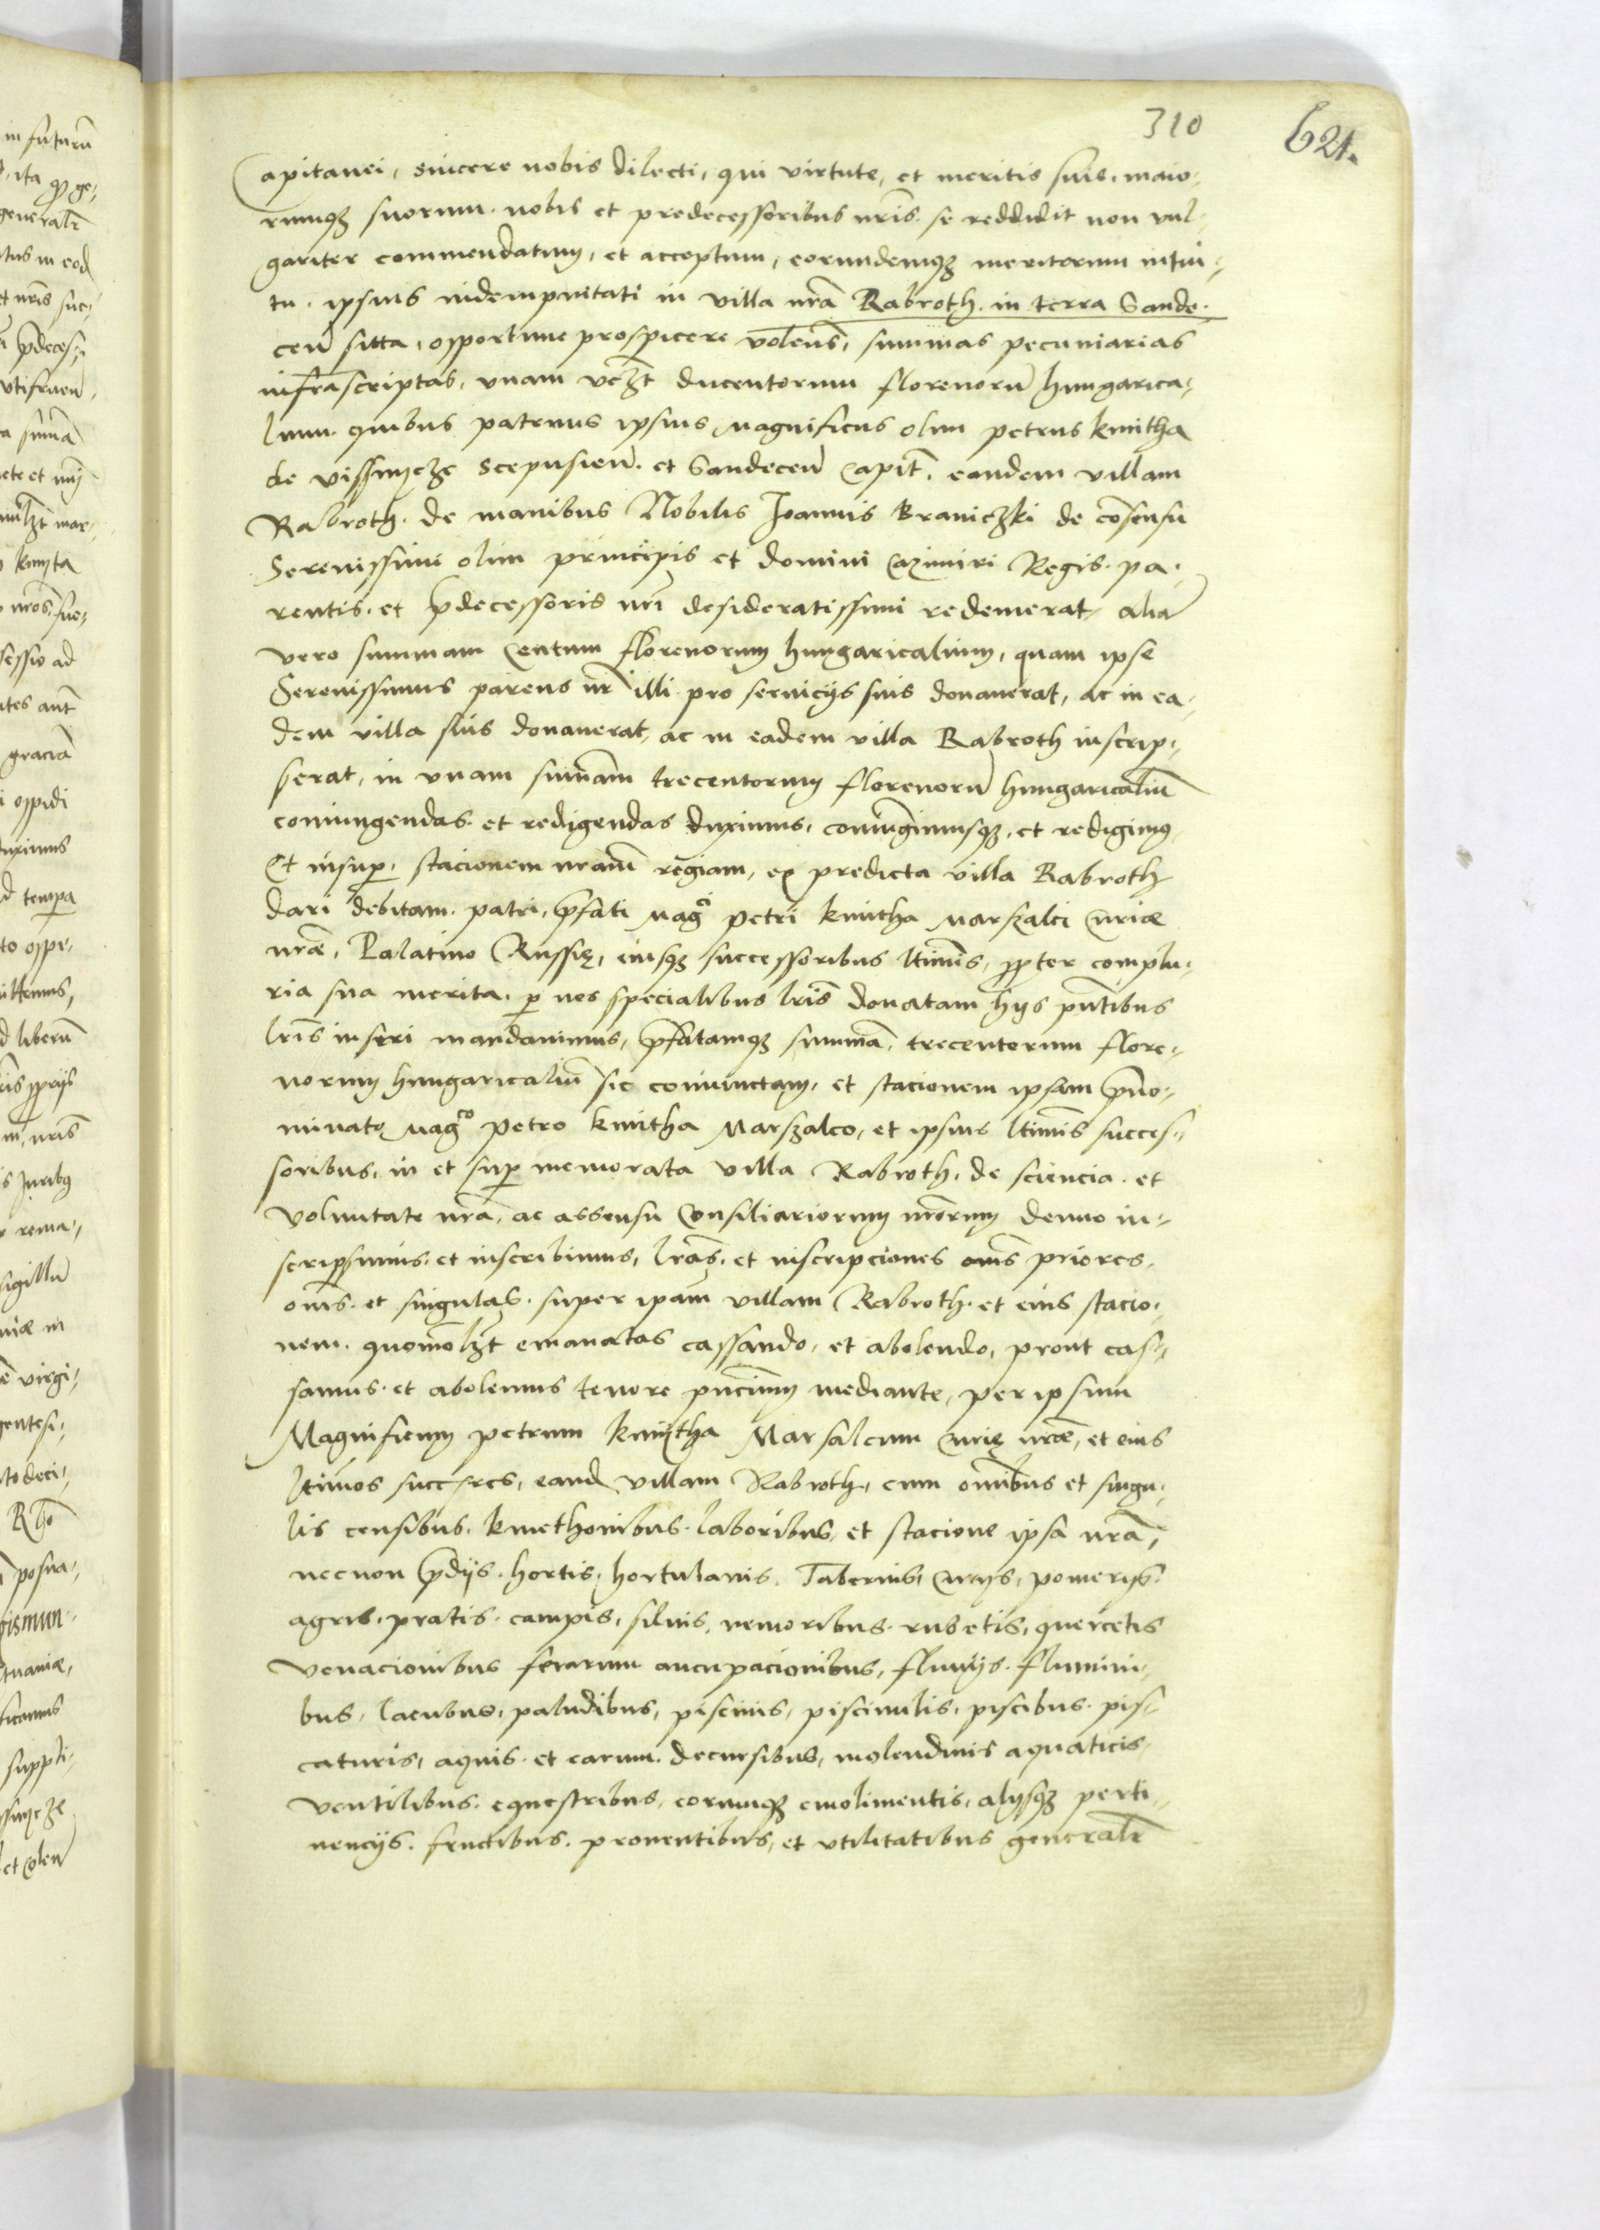 310
621.
Capitanei, sincere nobis dilecti, qui virtute, et meritis suis, maio,
rumq3 suorum. nobis et predecessoribus nr̄is. se reddidit non vul,
gariter commendatum, et acceptum, eorundemq3 meritorum intui,
tu. ipsius indempnitati in villa nr̄a Rabroth. in terra Sande,
cen̄ sitta, opportune prospicere volens̄, summas pecuniarias
infrascriptas, vnam vc3t ducentorum florenorū hungarica,
lium. quibus patruus ipsius Magnificus olim petrus kmitha
de vissnycze Scepusien̄. et Sandecen̄ Capit̄. eandem villam
Rabroth. de manibus Nobilis Joannis Braniczki de cōsensu
Serenissimi olim principis et domini Cazimiri Regis. pa,
rentis. et p̄decessoris nr̄i desideratissimi redemerat, aliā
vero summam Centum florenorum hungaricalium, quam ipse
Serenissimus parens nr̄ illi pro seruicijs suis donauerat, ac in ea,
dem villa suis donauerat, ac in eadem villa Rabroth inscrip,
serat, in vnam summam trecentorum florenorū hungaricaliū
coniungendas. et redigendas duximus, coniungimusq3, et redigimus
Et insup̱. stacionem nram̄ regiam, ex predicta villa Rabroth
dari debitam. patri, p̄fati Mag̊ petri kmitha Marszalci Curiae
nrae̅, Palatino Russię, eiusq3 successoribus ltimis̄, propter complu,
ria sua merita. p̱ nos specialibus lr̄is donatam hijs pn̄tibus
lr̄is inseri mandauimus, p̄fatamq3 summā, trecentorum flore,
norum hungaricaliū sic coniunctam, et stacionem ipsam p̄no,
minato Mag̊ petro kmitha Marszalco, et ipsius ltimis̄ succes,
soribus, in et sup̱ memorata villa Rabroth, de sciencia. et
voluntate nr̄a, ac assensu Consiliariorum nr̄orum denuo in,
scripsimus. et inscribimus, lrās. et inscripciones om̄s priores,
om̄s. et singulas. super ipam̄ villam Rabroth. et eius stacio,
nem. quomōl3t emanatas cassando, et abolendo, prout cas,
samus. et abolemus tenore pn̄cium mediante, per ipsum
Magnificum petrum kmytha Marsalcum Curię nrae̅, et eius
ltimos succ̄sres, eand̄ villam Rabroth, cum om̄ibus et singu,
lis censibus. kmethonibus. laboribus, et stacione ipsa nr̄a,
necnon p̄dijs. hortis, hortulanis. Tabernis, Curijs, pomerijs.
agris. pratis. campis, siluis, nemoribus. rubetis, quercetis
venacionibus ferarum aucupacionibus, fluuijs. flumini,
bus, lacubus, paludibus, piscinis, piscinulis, piscibus. pis,
caturis, aquis. et earum. decursibus, molendinis aquaticis,
ventilibus. equestribus, eorumq3 emolimentis, alijsq3 perti,
nencijs. fructibus. prouentibus, et vtilitatibus generalr̄